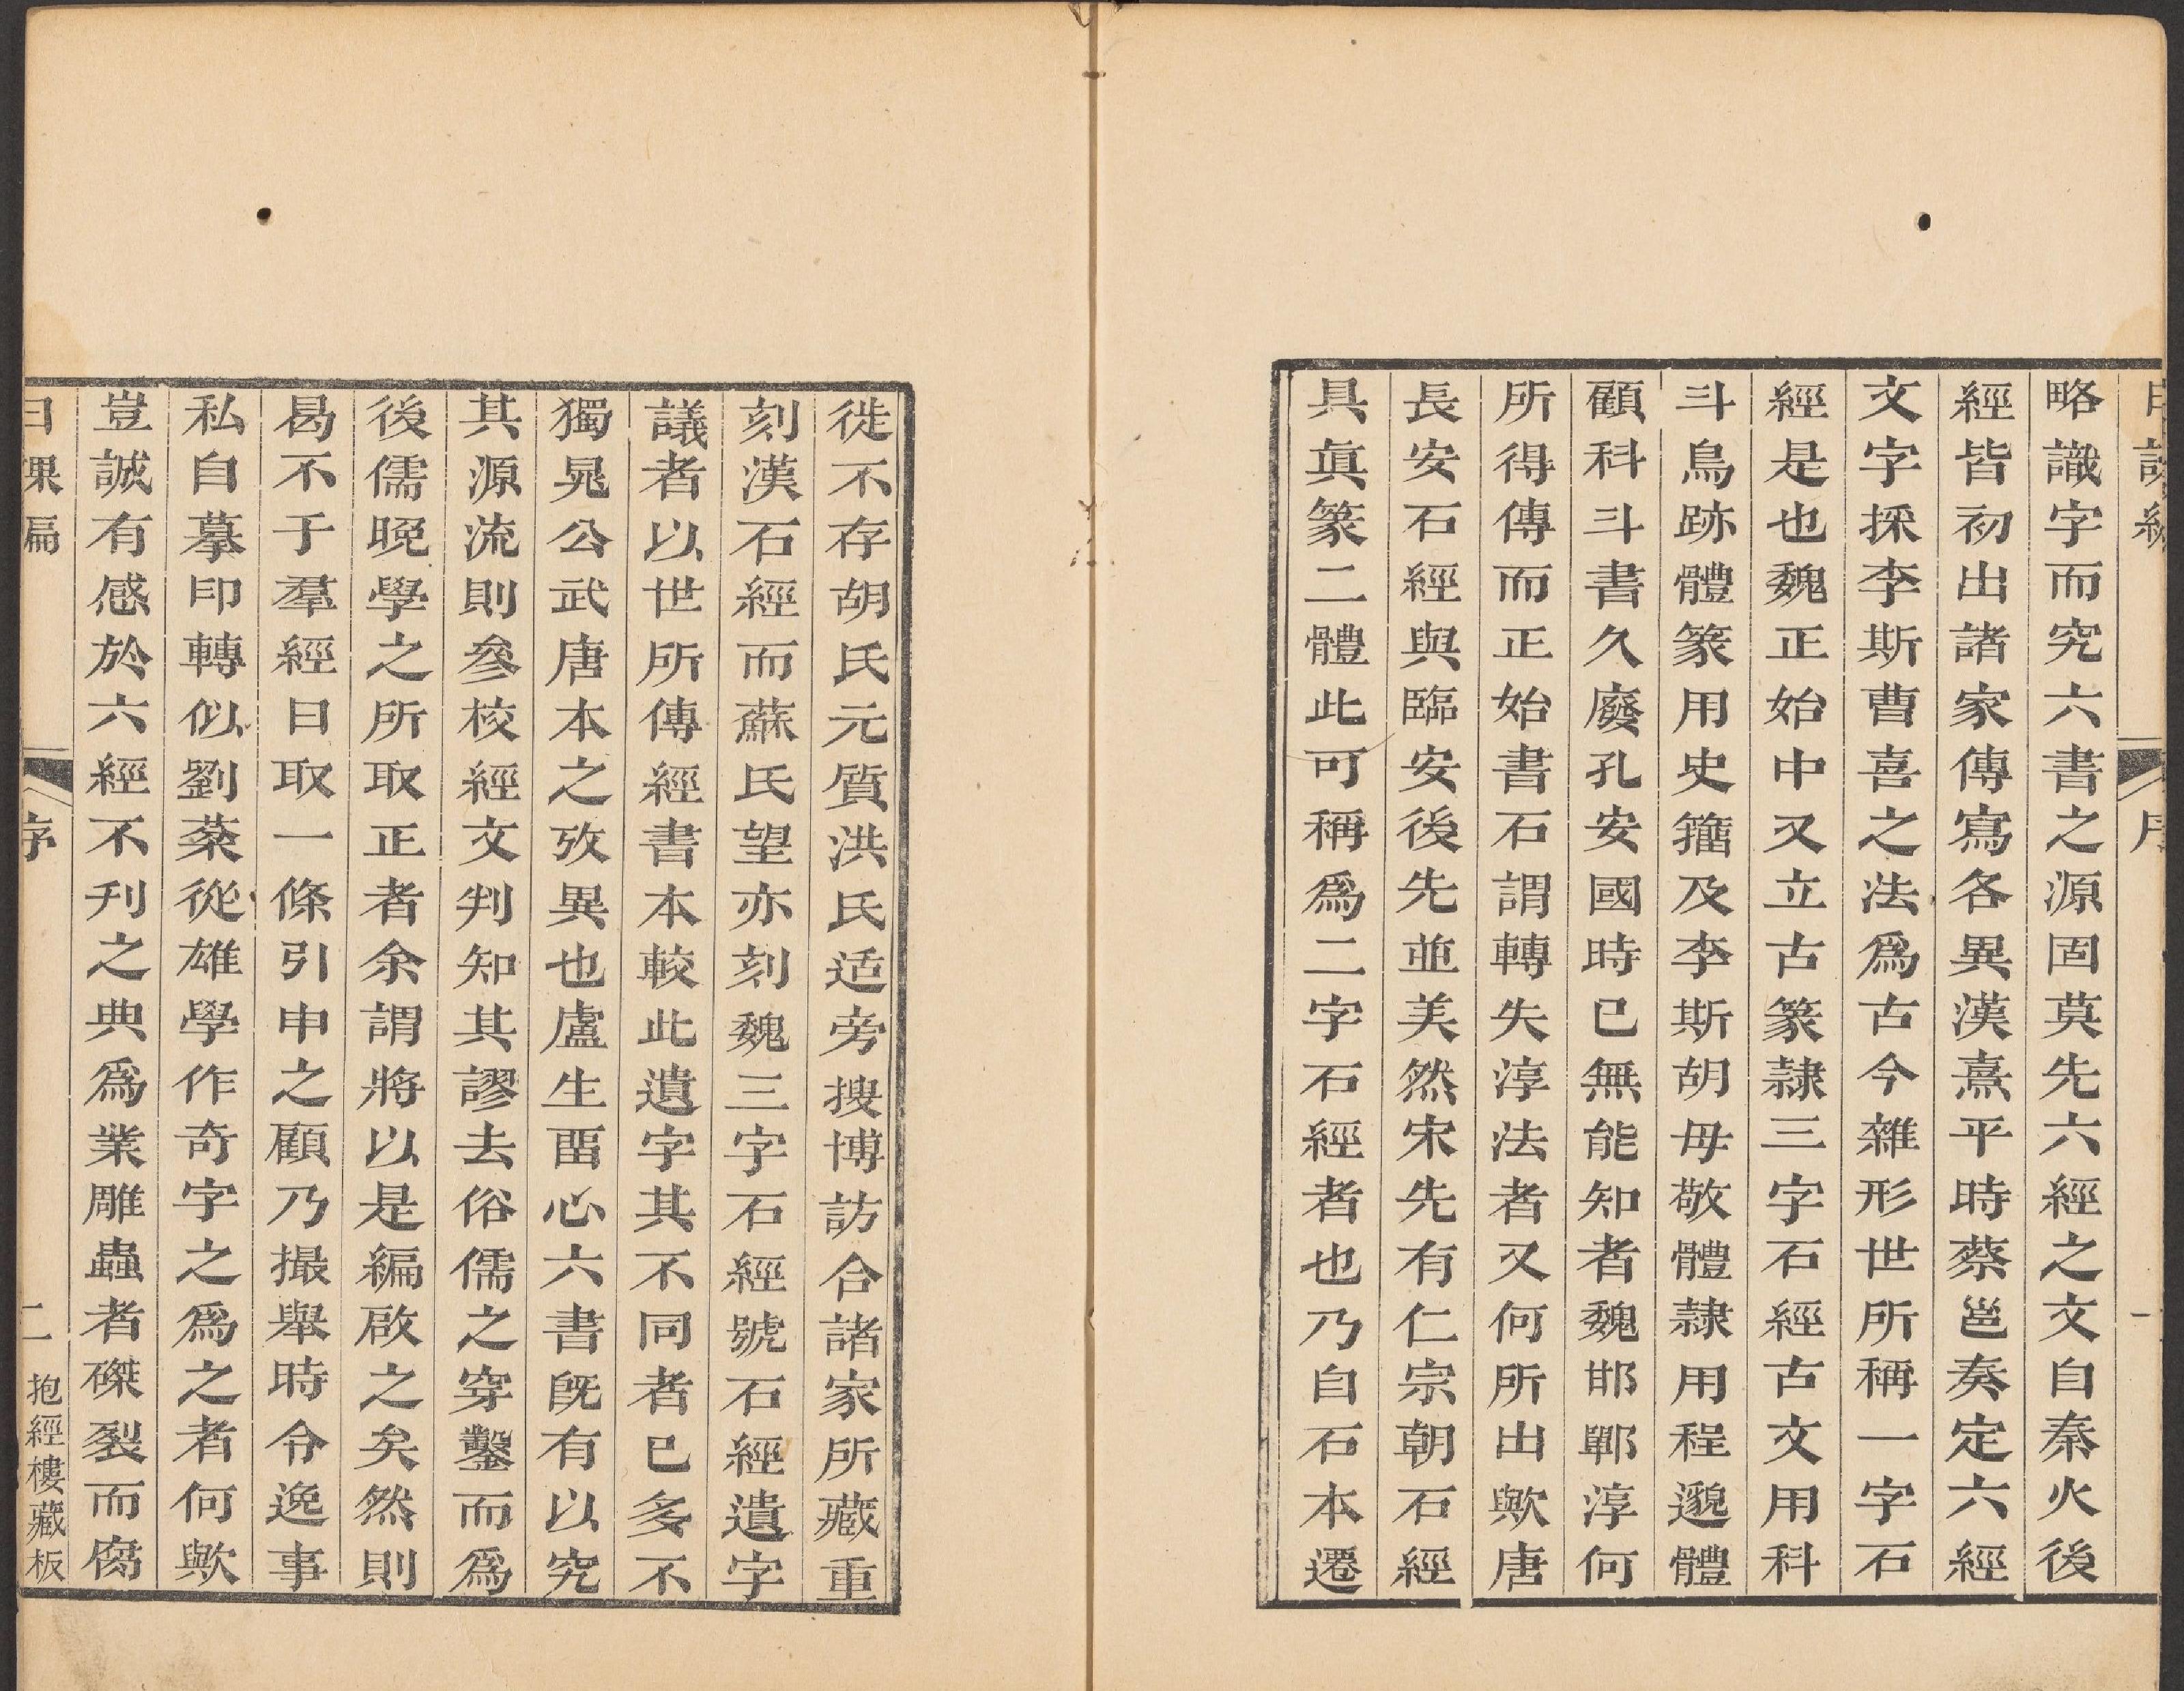 略識字而究六書之源固莫先六經之文自秦火後
經皆初出諸家傳寫各異漢熹平時蔡邕奏定六經
文字採李斯曹喜之法爲古今雜形世所稱一字石
經是也魏正始中又立古篆隷三字石經古文用科
斗鳥跡體篆用史籀及李斯胡毋敬體隷用程邈體
顧科斗書久廢孔安國時已無能知者魏邯鄲淳何
所得傳而正始書石謂轉失淳法者又何所出歟唐
長安石經與臨安後先並美然宋先有仁宗朝石經
具眞篆二體此可稱爲二字石經者也乃自石本遷
徙不存胡氏元質洪氏适旁搜博訪合諸家所藏重
刻漢石經而蘇氏望亦刻魏三字石經號石經遺字
議者以世所傳經書本較此遺字其不同者已多不
獨晁公武唐本之攷異也盧生畱心六書旣有以究
其源流則參校經文判知其謬去俗儒之穿鑿而爲
後儒晚學之所取正者余謂將以是編啟之矣然則
曷不于羣經日取一條引申之顧乃撮舉時令逸事
私自摹印轉似劉棻從雄學作奇字之爲之者何歟
豈誠有感於六經不刋之典爲業雕蟲者磔裂而腐
日課編 序 二 抱經樓藏板